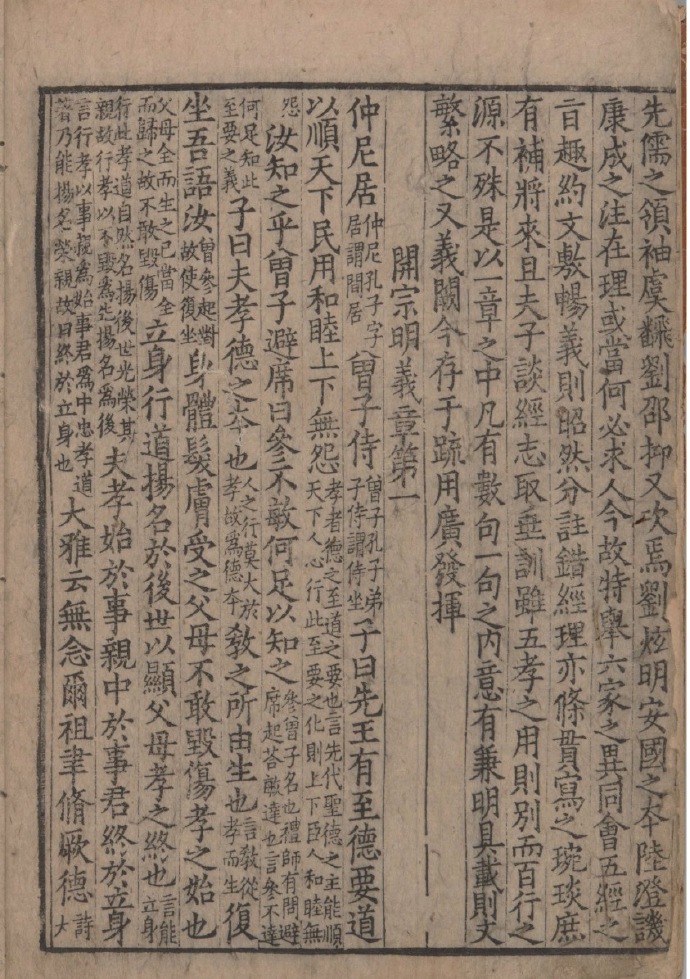 先儒之領袖虞飜劉邵抑又次焉劉炫明安國之本陸澄譏
康成之注在理或當何必求人今故特舉六家之異同會五經之
旨趣約文敷暢義則昭然分註錯經理亦條貫寫之琬琰庶
有補將來且夫子談經志取垂訓雖五孝之用則別而百行之
源不殊是以一章之中凡有數句一句之內意有兼明具載則文
繁略之又義闕今存于疏用廣發揮
開宗明義章第一
仲尼居仲尼孔子字居謂閒居曾子侍曾子孔子弟子侍謂侍坐子曰先王有至德要道
以順天下民用和睦上下無怨孝者德之至道之要也言先代聖德之主能順天下人心行此至要之化則上下臣人和睦無
怨汝知之乎曾子避席曰參不敏何足以知之參曾子名也禮師有問避席起荅敏達也言參不達
何足知此至要之義子曰夫孝德之本也人之行莫大於孝故爲德本教之所由生也言教從孝而生復
坐吾語汝曾參起對故使復坐身體髮膚受之父母不敢毀傷孝之始也
父母全而生之己當全而歸之故不敢毀傷立身行道揚名於後世以顯父母孝之終也言能立身
行此孝道自然名揚後世光榮其親故行孝以不毀爲先揚名爲後夫孝始於事親中於事君終於立身
言行孝以事親爲始事君爲中忠孝道著乃能揚名榮親故曰終於立身也大雅云無念爾祖聿脩厥德詩大